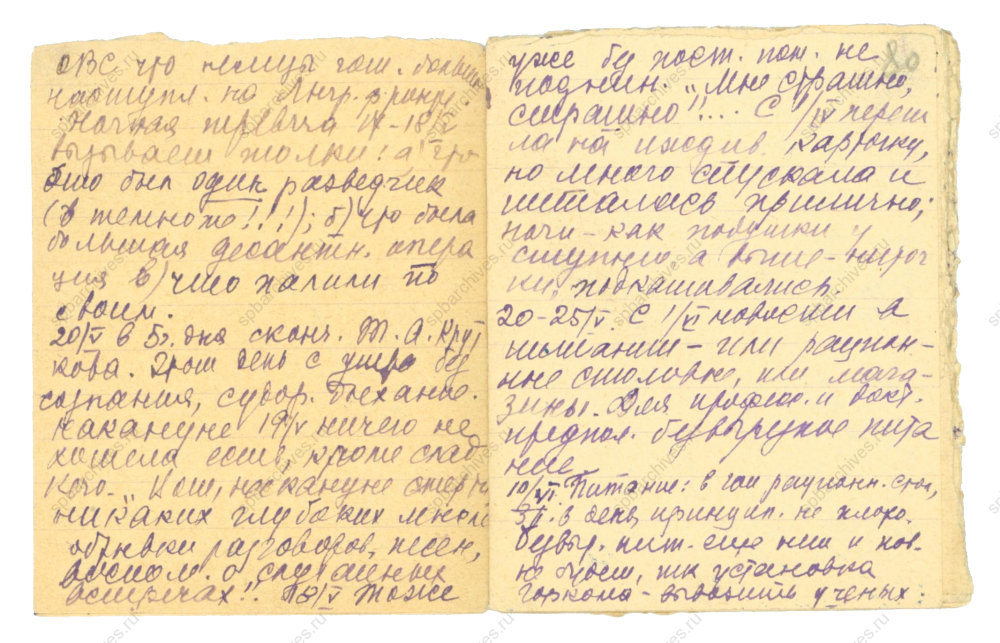 ОВС что немцы гот. больш.
наступл. на Лнгр. фронт.
Ночная тревога 17-18/V
вызывает толки: а) что
это был один разведчик
(в темноте!!!); б) что была
большая десантн. опера
ция в) что палили по
своим.
20/V в 5ч. дня сконч. Т. А. Крут
кова. Этот день с утра без
сознания, судор. дыхание.
Накануне 19/V ничего не
хотела есть, кроме слад
кого.
никаких глубоких много
объемл. разговоров, песен,
воспом. о случайных
встречах!. 18/V тоже
80
уже без пост. пом. не
подним. „Мне страшно,
страшно!!... С 1/IV переш
ла на иждив. карточку,
но много спускала и
питалась прилично;
ноги - как подушки у
ступню, а выше - ниточ
ки, подкашивались.
20-25/V. С 1/VI новости в
питании - или рацион-
ные столовые, или мага-
зины. Для профес. и докт.
предпол. безвырезное пита
ние
10/VI. Питание: в гос рационн. стол,
в день, принцип. не плохо.
Безвыр. пит. еще нет и пов-
не будет, тк установка
горкома - вывозить ученых: